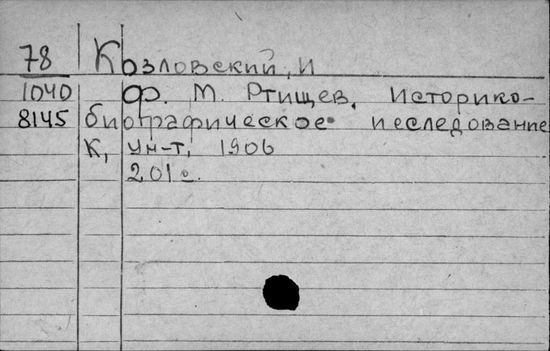 78 Козловский, И
1040 Ф. М. Ртищев. Историко-
8145 биографическое исследование
К, ун-т, 1906
201 с.